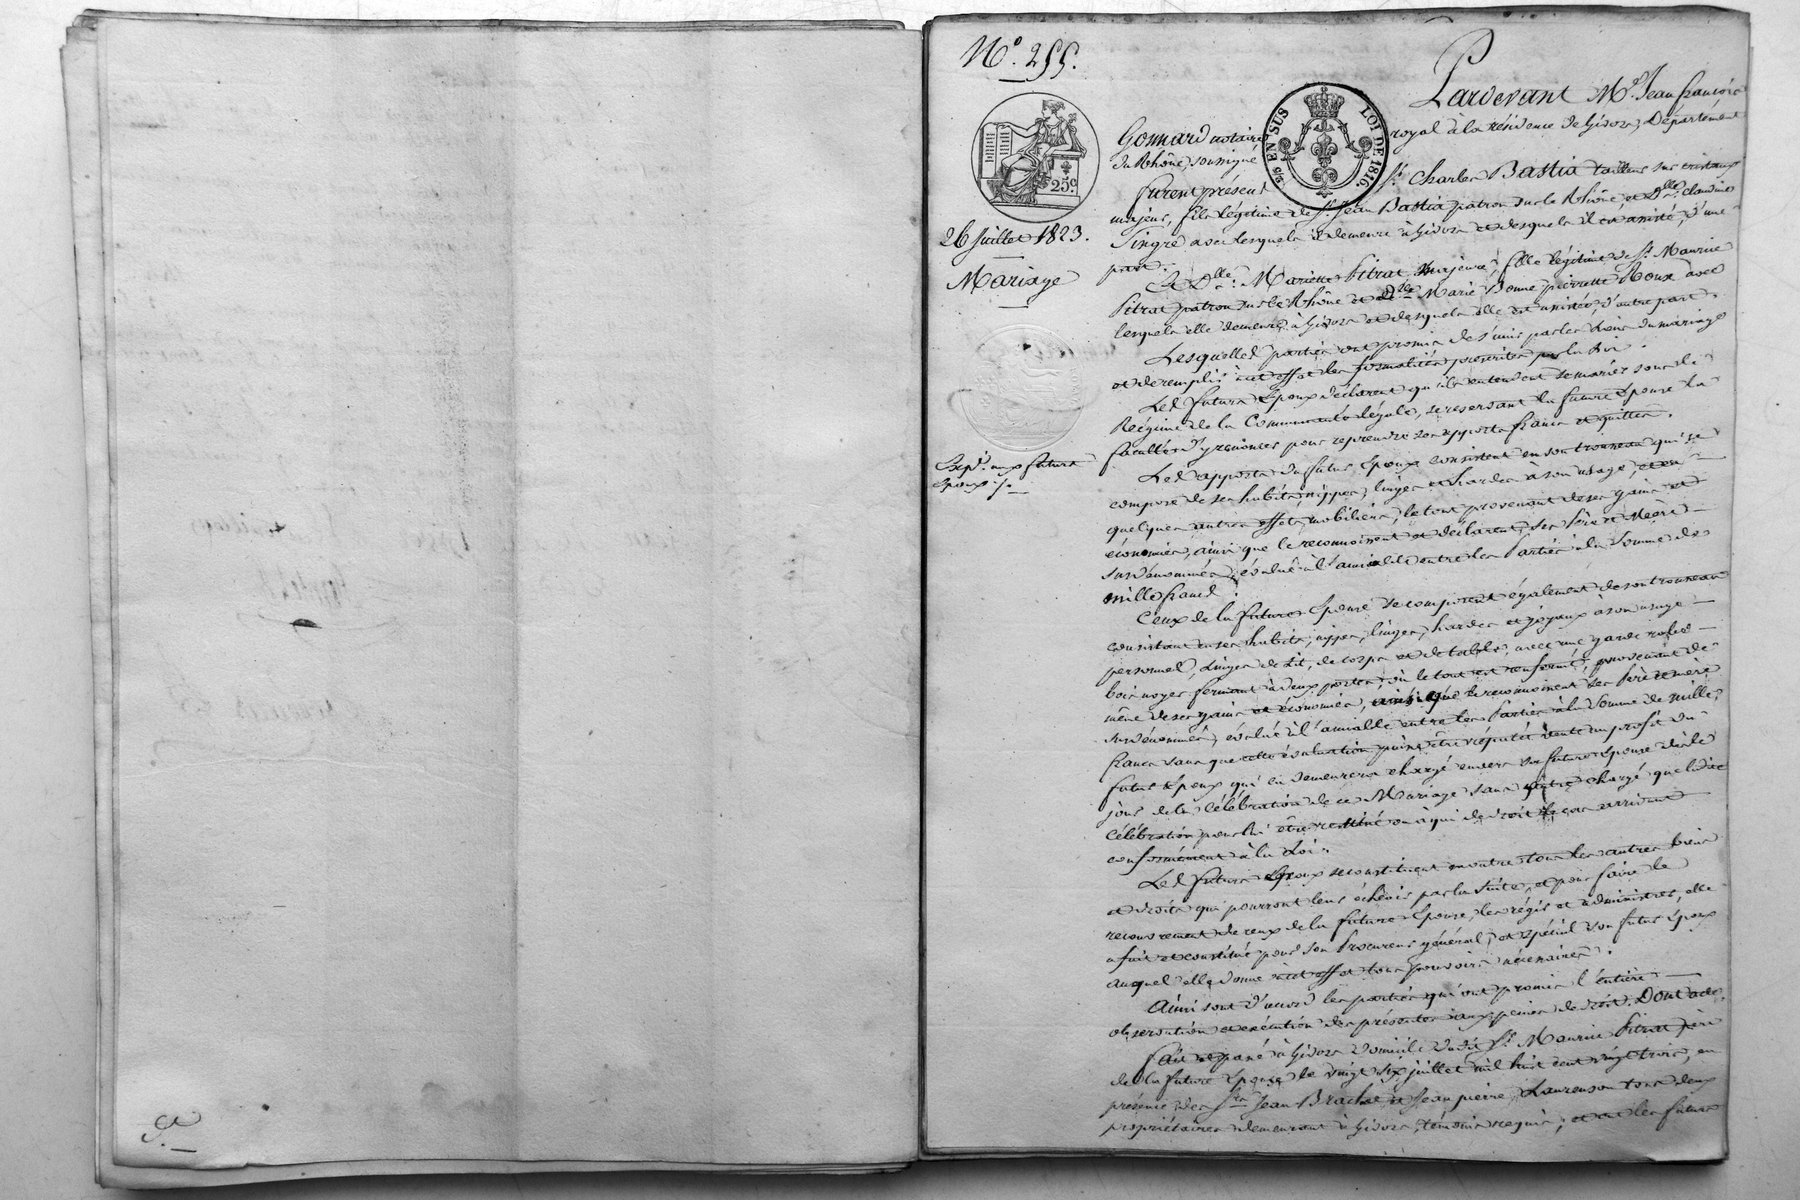 N.º 255.
25c.
EN SUS
LOI DE 1816.
26 Juillet 1823.
Mariage
Expd. aux futurs
Epoux
Pardevant Me. Jean françois
Gonnard notaire royal à la résidence de Givors, Département
du Rhône, soussigné
furent présent Sr. Charles Bastia tailleur sur cristaux
majeur, fils légitime de Sr. Jean Bastia patron sur le Rhône, et Dlle. Claudine
Singre avec lesquels il demeure à Givors et desquels il est assisté, d'une
part.
Et Dlle. Mariette Pitrat majeure, fille légitime de Sr. Maurice
Pitrat patron sur le Rhône et Dlle Marie Bonne pierrette Roux avec
lesquels elle demeure à Givors et desquels elle est assistée, d'autre part.
Lesquelles parties ont promis de s'unir par les liens du mariage
et de remplir à cet effet les formalités prescrites par la Loi.
Les futurs Epoux déclarent qu'ils entendent se marier sous le
Régime de la Communauté légale, se reservant la future Epouse la
faculté d'y renoncer pour reprendre ses apports francs et quittes.
Les apports du futur Epoux consistent en son trousseau qui se
compose de ses habits, nippes, linges et hardes à son usage, et en
quelques autres effets mobiliers, le tout provenant de ses gains et
économies, ainsi que le reconnoissent et déclarent ses Père et Mère
susdénommés, évalué à l'amiable entre les Parties à la somme de
mille francs.
Ceux de la future Epouse se composent également de son trousseau
consistant en ses habits, nippes, linges, hardes et joyaux à son usage
personnel, linges de lit, de corps et de table, avec une garde robe
bois noyer fermant à deux portes, où le tout est renfermé, provenant de
même de ses gains et économies, ainsi que le reconnoissent ses Père et mère
susdénommés, évalué à l'amiable entre les Parties à la somme de mille
francs sans que cette évaluation puisse être réputée vente au profit du
futur Epoux qui en demeurera chargé envers sa future Epouse dès le
jour de la célébration de ce Mariage sans autre chargé que ladite
célébration pour lui être restitué ou à qui de droit le cas arrivant
conformément à la Loi.
Les futurs Epoux se constituent en outre tous les autres biens
et droits qui pourront leur échéoir par la suite, et pour faire le
recouvrement de ceux de la future Epouse, les régir et administrer, elle
a fait et constitué pour son Procureur général et spécial son futur Epoux
auquel elle donne à cet effet tous pouvoirs nécessaires.
Ainsi sont d'accord les parties qui ont promis l'entière
observation et exécution des présentes aux peines de droit. Dont acte.
fait et passé à Givors domicile dudit Sr. Maurice Pitrat père
de la future Epouse le vingt six juillet mil huit cent vingt trois, en
présence des Srs. Jean Brachet et Jean pierre Laurenson tous deux
propriétaires demeurant à Givors, témoins requis; et ont les futurs